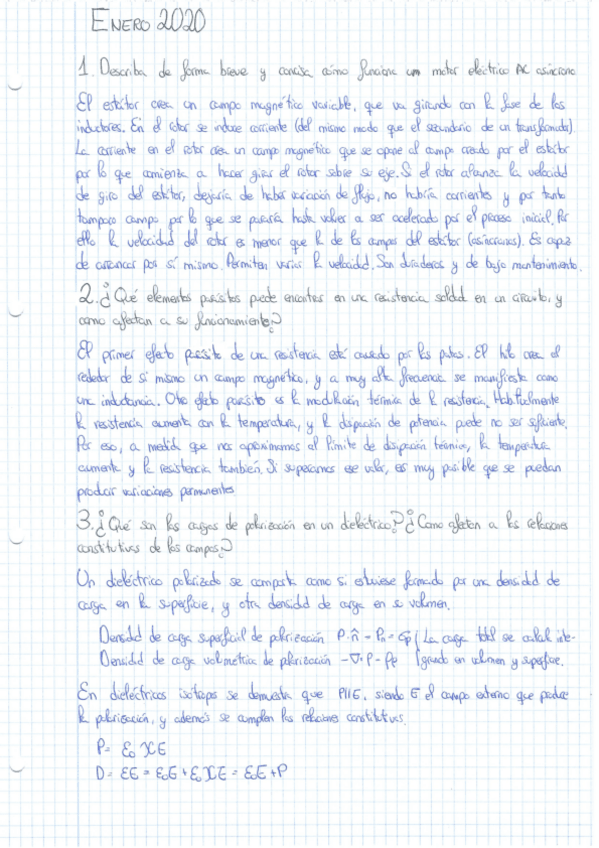 ENERO 2020
1. Describa de forma breve y concisa cómo funciona un motor eléctrico AC asíncrono
El estátor crea un campo magnético variable, que va girando con la fase de los
inductores. En el rotor se induce corriente (del mismo modo que el secundario de un transformador).
La corriente en el rotor crea un campo magnético que se opone al campo creado por el estátor
por lo que comienza a hacer girar el rotor sobre su eje. Si el rotor alcanza la velocidad
de giro del estátor, dejaría de haber variación de flujo, no habría corrientes y por tanto
tampoco campo por lo que se pararía hasta volver a ser acelerado por el proceso inicial. Por
ello la velocidad del rotor es menor que la de los campos del estátor (asíncronos). Es capaz
de arrancar por sí mismo. Permiten variar la velocidad. Son duraderos y de bajo mantenimiento.
2. ¿Qué elementos parásitos puede encontrar en una resistencia soldada en un circuito, y
como afectan a su funcionamiento?
El primer efecto parásito de una resistencia está causado por las patas. El hilo crea al
rededor de si mismo un campo magnético, y a muy alta frecuencia se manifiesta como
una inductancia. Otro efecto parásito es la modulación térmica de la resistencia. Habitualmente
la resistencia aumenta con la temperatura, y la disipación de potencia puede no ser suficiente.
Por eso, a medida que nos aproximamos al límite de disipación térmica, la temperatura
aumenta y la resistencia también. Si superamos ese valor, es muy posible que se puedan
producir variaciones permanentes
3. ¿Qué son las cargas de polarización en un dieléctrico? ¿Como afectan a las relaciones
constitutivas de los campos?
Un dieléctrico polarizado se comporta como si estuviese formado por una densidad de
carga en la superficie, y otra densidad de carga en su volumen.
Densidad de carga superficial de polarización P·n̂ = Pn = σp | La carga total se calcula inte-
Densidad de carga volumétrica de polarización -∇·P = ρp | grando en volumen y superficie.
En dieléctricos isótropos se demuestra que P||E, siendo E el campo externo que produce
la polarización, y además se cumplen las relaciones constitutivas.
P = ε₀ χE
D = εE = ε₀E + ε₀ χE = ε₀E + P